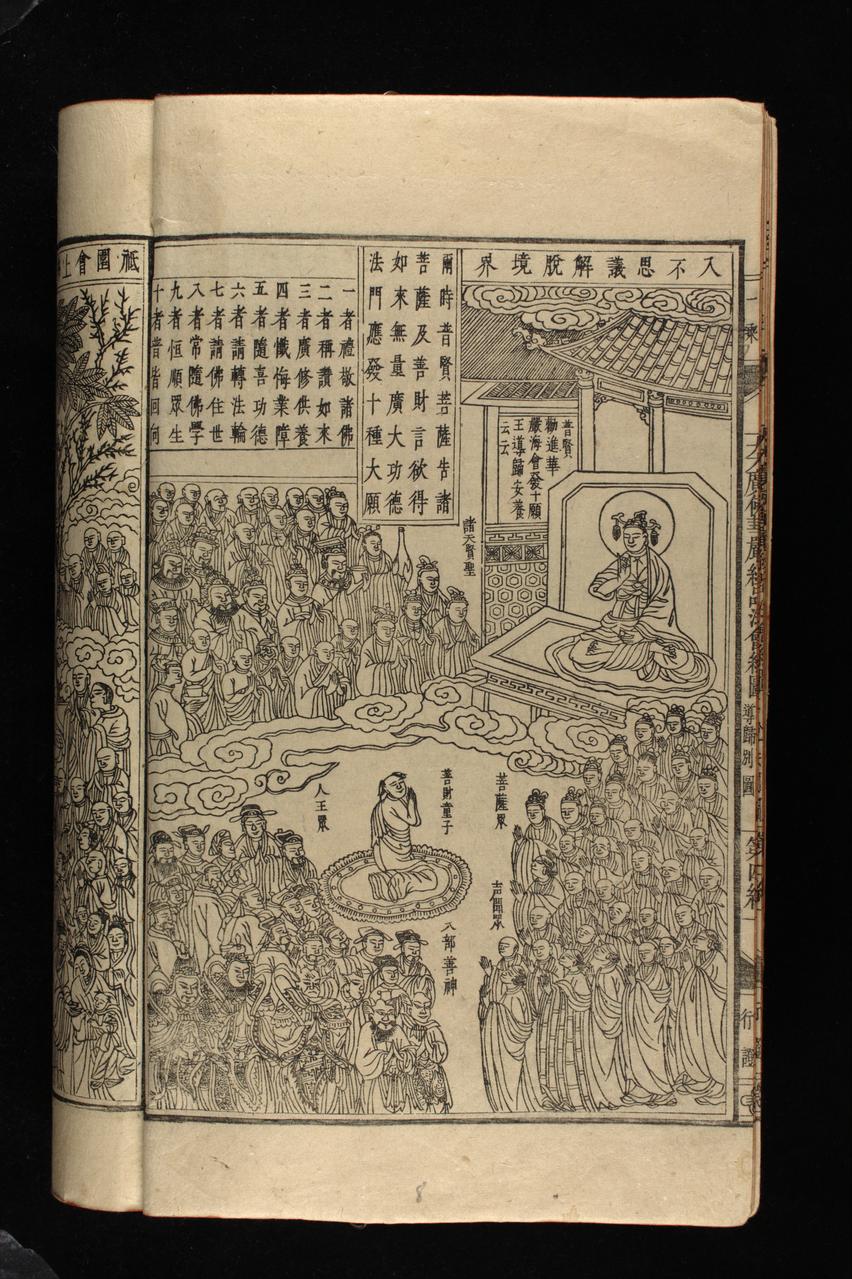 入不思議解脫境界
爾時普賢菩薩告諸
菩薩及善財言欲得
如來無量廣大功德
法門應發十種大願
一者禮敬諸佛
二者稱讚如來
三者廣修供養
四者懺悔業障
五者隨喜功德
六者請轉法輪
七者請佛住世
八者常隨佛學
九者恒順眾生
十者普皆回向
普賢
勸進華
嚴海會發十願
王導歸安養
云云
諸天賢聖
菩薩眾
善財童子
人王眾
声聞眾
八部善神
祗園會上
導歸別圖
第四紙
行證
8